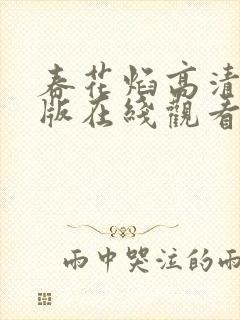 春花焰高清
版在綫觀看
雨中哭泣的雨